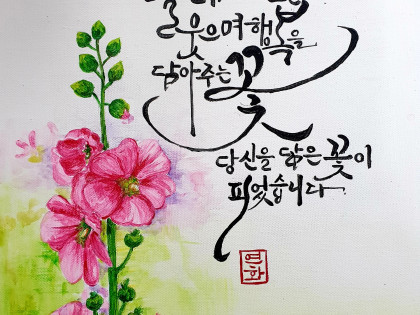 웃으며 행복을
닮아주는 꽃
당신을 닮은 꽃이
피었습니다
연화